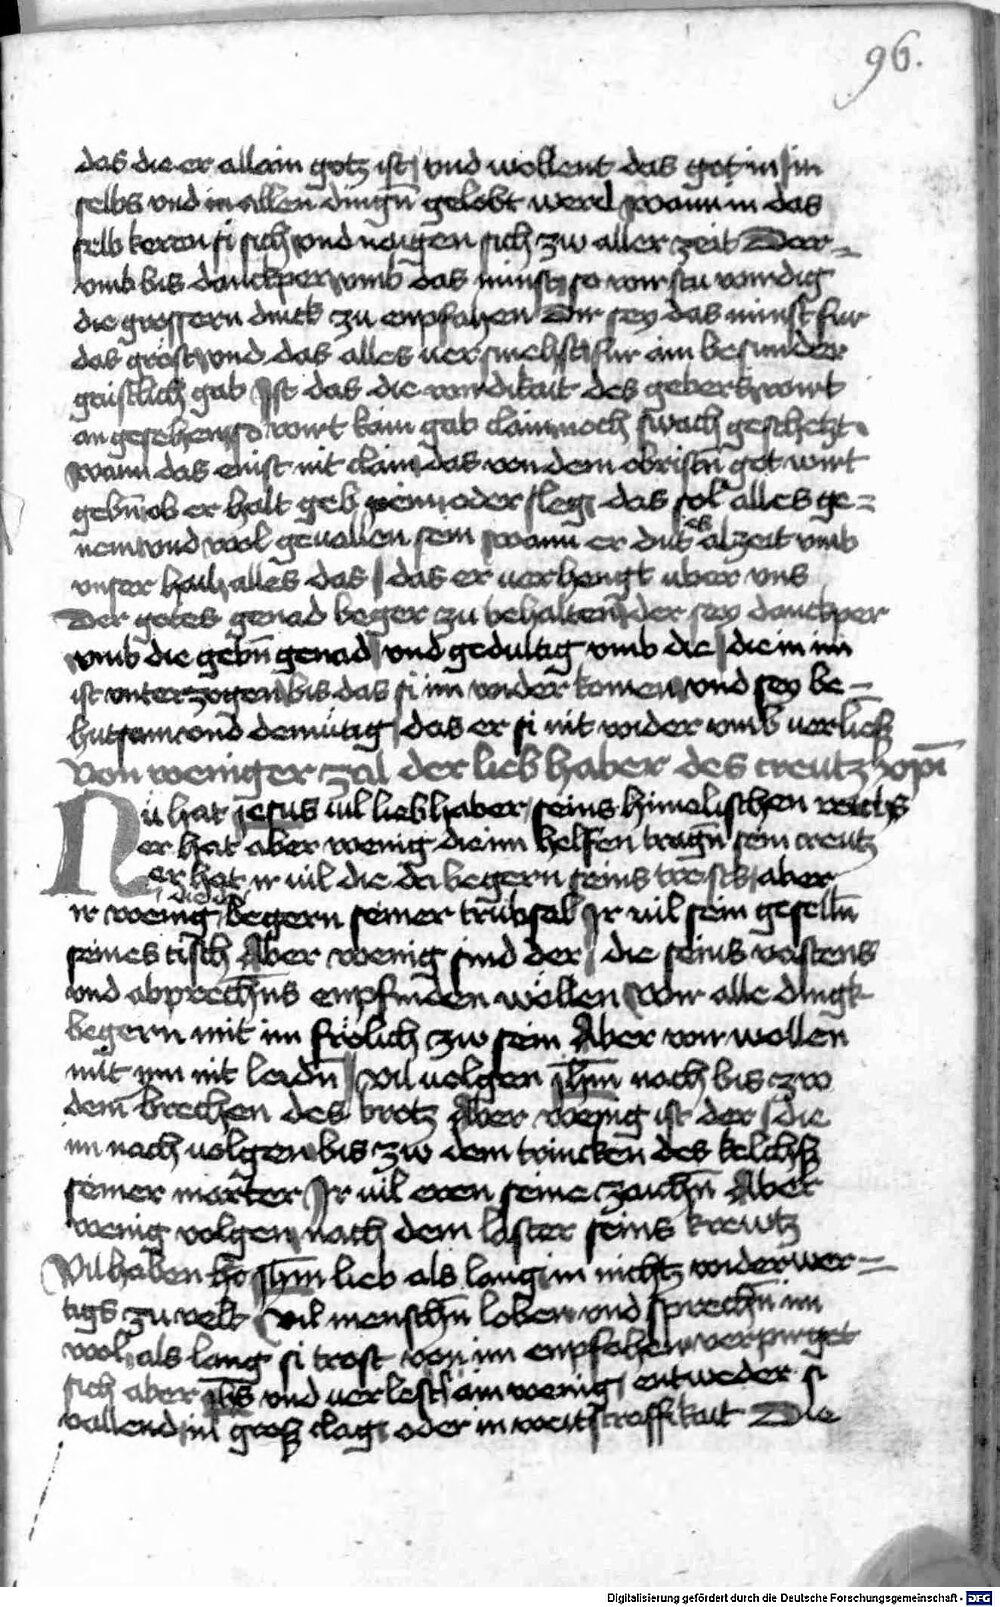 96.
das die er allain gotz ist / vnd wollent das got in / in
selbs vnd in allen dingn̄ gelobt werd / wann in das
selb keren si sich / vnd naigen sich zw aller zeit Dar=
vmb bis danckper vmb das minst / so wirstu wirdig
die grossern dinck zu enpfahen Dir sey das minst fur
das gröst / vnd das alles versmehst / fur ain besunder
gaistlich gab Ist das die wirdikait des gebers wirt
an gesehen / so wirt kain gab clain noch swach geschetzt
wann das enist nit clain / das von dem obristn̄ got wirt
gebn̄ / ob er halt geb pein oder sleg / das sol alles ge=
nem vnd wol geuallen sein / wann er dut es alzeit vmb
vnser hail / alles das / das er verhengt vber vns
Der gotes genad beger zu behalten / der sey danckper
vmb die gebn̄ genad / vnd gedultig vmb die / die in im
ist vnterzogen / bis das si im wider komen / vnd sey be=
hutsam vnd demütig / das er si nit wider vmb verlies
Von weniger zal der liebhaber des creutz
Nu hat jesus vil liebhaber / seins himelischen reichs
er hat aber wenig die im helfen tragn̄ sein creutz
er hat ir vil die da begern seins trosts / aber
die da
ir wenig / begern seiner trübsal Ir vil sein geselln̄
seines tisch Aber wenig sind der / die seins vastens
vnd abprechens enpfinden wöllen / wir alle dingk
begern mit im frölich zw sein Aber wir wollen
mit ym nit leidn̄ / vil uolgen jhm̄ nach bis zw
dem brechen des brotz Aber wenig ist der / die
im nach uolgen bis zw dem trincken des kelchs
seiner marter / Ir vil eren seine zaichn̄ Aber
wenig volgen nach dem laster seins krewtz
Vil haben jhm̄ lieb als lang in nichtz widerwer=
tigs zu velt / vil menschn̄ loben vnd sprechn̄ im
wol / als lang si trost von im enpfahen / verpirget
sich aber jhs̄ vnd verlest / ain wenig / entweder si
vallend in gros clag / oder in straffikait Die
Digitalisierung gefördert durch die Deutsche Forschungsgemeinschaft - DFG